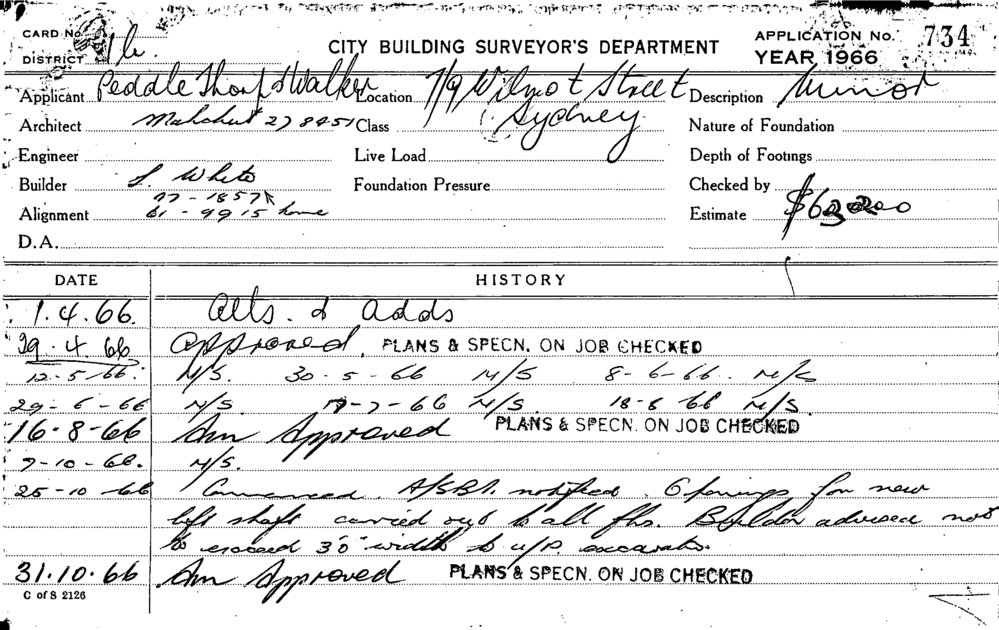 CARD No.
DISTRICT
CITY BUILDING SURVEYOR'S DEPARTMENT
APPLICATION No. 734
YEAR 1966
Applicant Peddle Thorp & Walker Location 7/9 Wilmot Street Description Minor
Architect 27 8451 Class Sydney Nature of Foundation
Engineer Live Load Depth of Footings
Builder White Foundation Pressure Checked by
77-1857
Alignment 61-9915 home Estimate
D.A.
DATE HISTORY
1.4.66. Alts. & Adds
29.4.66 Approved. PLANS & SPECN. ON JOB CHECKED
12-5-66. N/S. 30-5-66 N/S 8-6-66. N/S
29-6-66 N/S. -7-66 N/S. 18-8 66 N/S.
16-8-66 Am Approved PLANS & SPECN. ON JOB CHECKED
7-10-66. N/S.
25-10-66 Commenced. notified. Openings for new
lift shaft carried out to all flrs. Builder advised not
to exceed 3'0" width to u/p. excavate.
31.10.66 Am Approved PLANS & SPECN. ON JOB CHECKED
C of S 2126